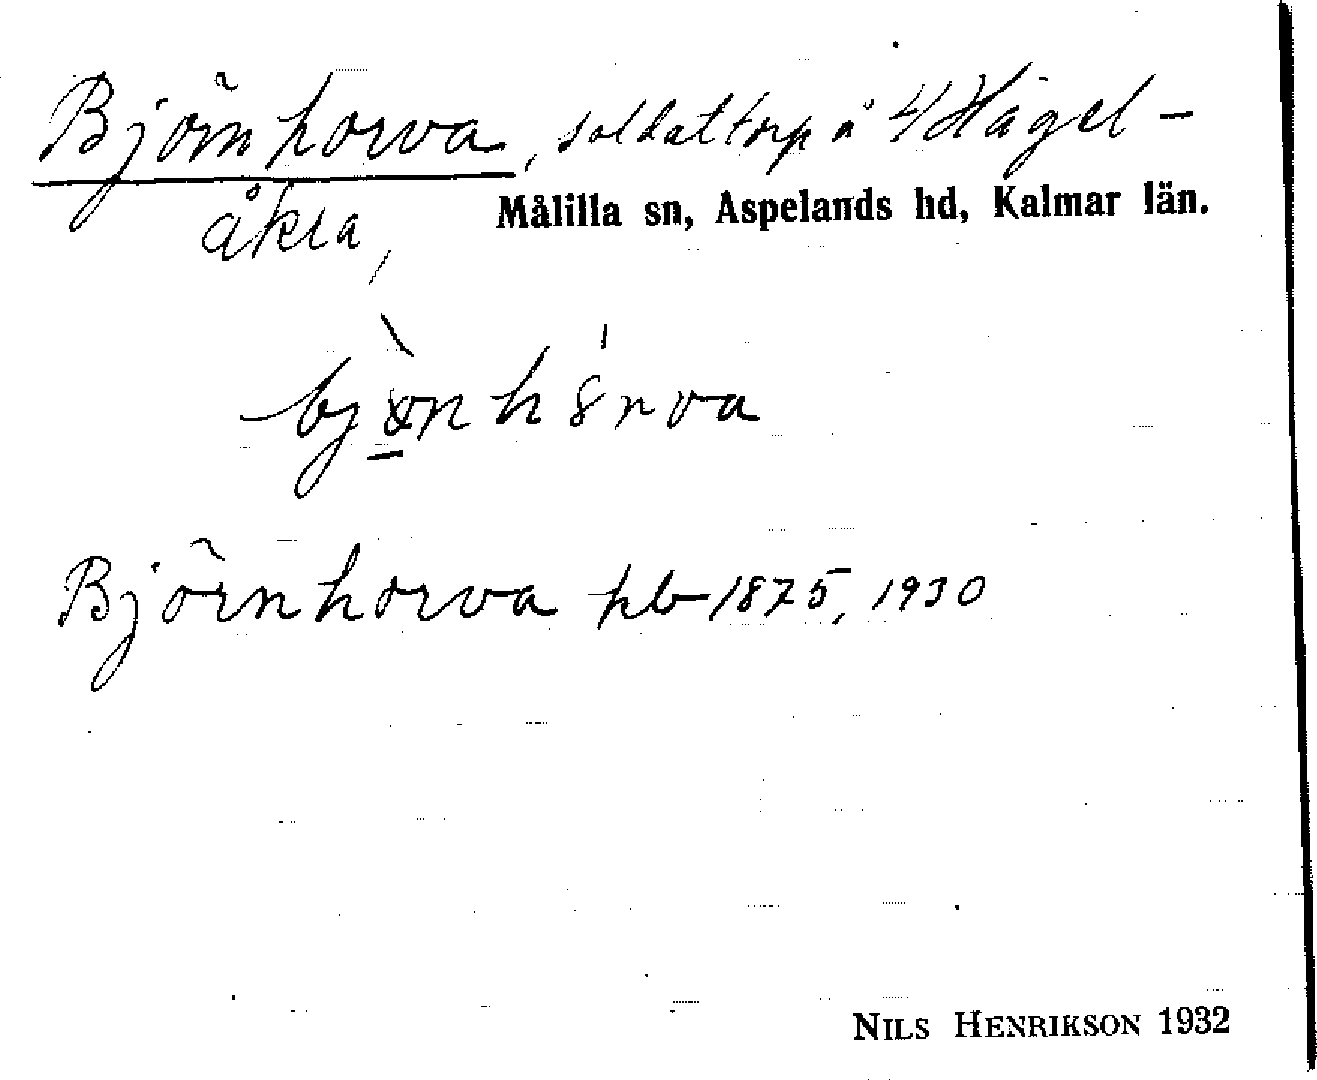 Björnhorva, soldattorp å 4/ Hagel-
åkra,
Målilla sn, Aspelands hd, Kalmar län.
Björnhorva pb 1875, 1930
NILS HENRIKSON 1932